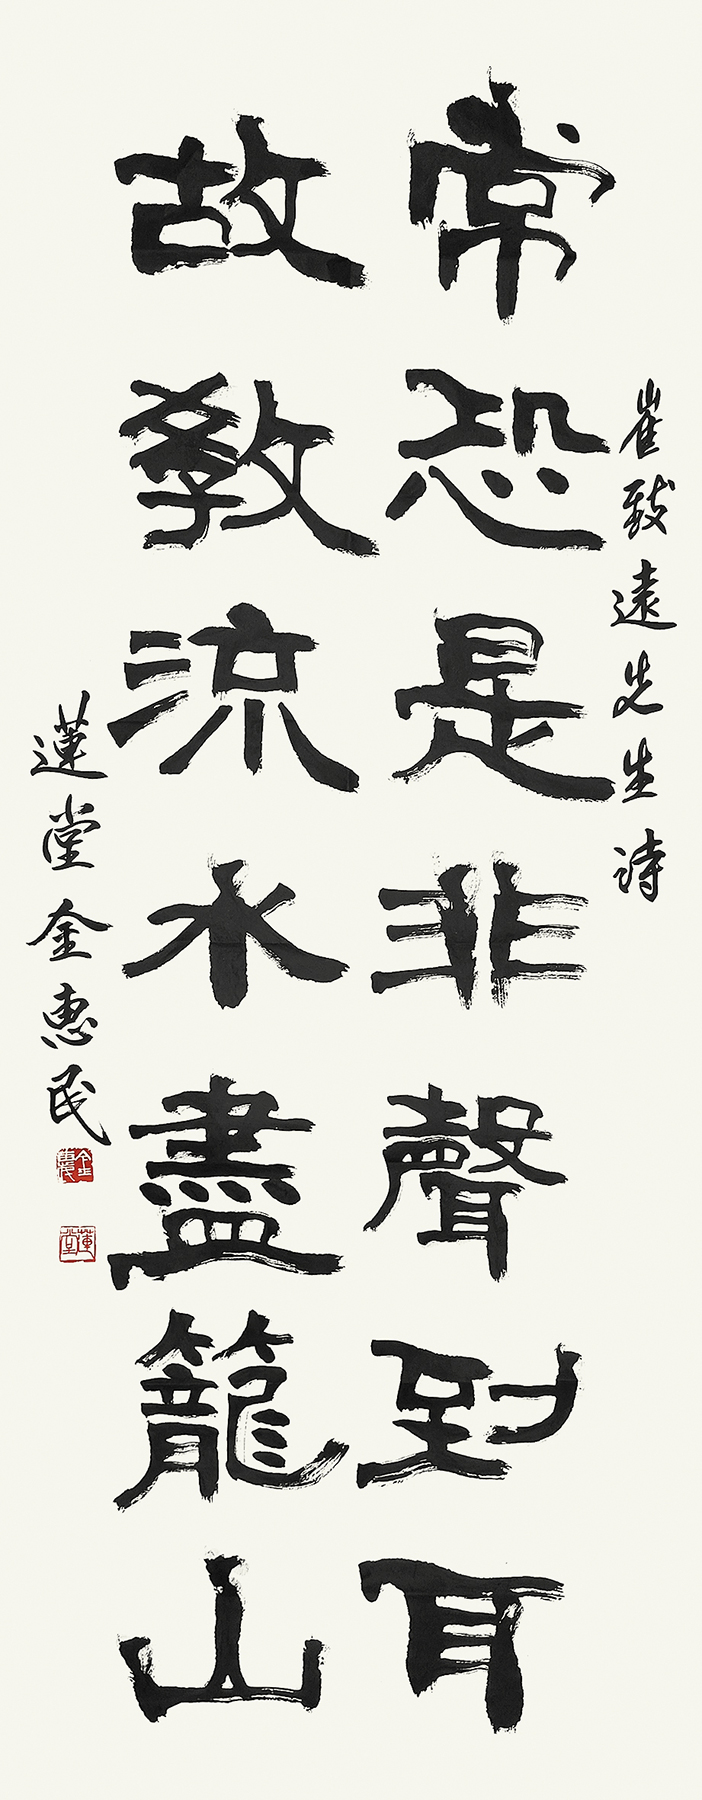 崔致遠先生詩
常恐是非聲到耳
故敎流水盡籠山
蓮堂金惠民
金惠民
蓮堂